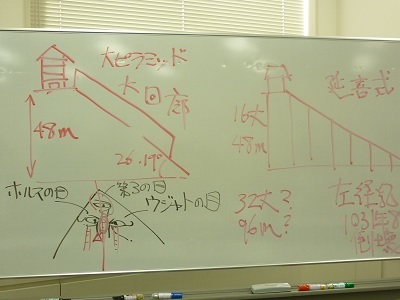 大ピラミッド
大回廊
48m
26.19°
ホルスの目
第3の目
ウジャトの目
延喜式
16丈
48m
32丈?
96m?
左経記
1031年8月